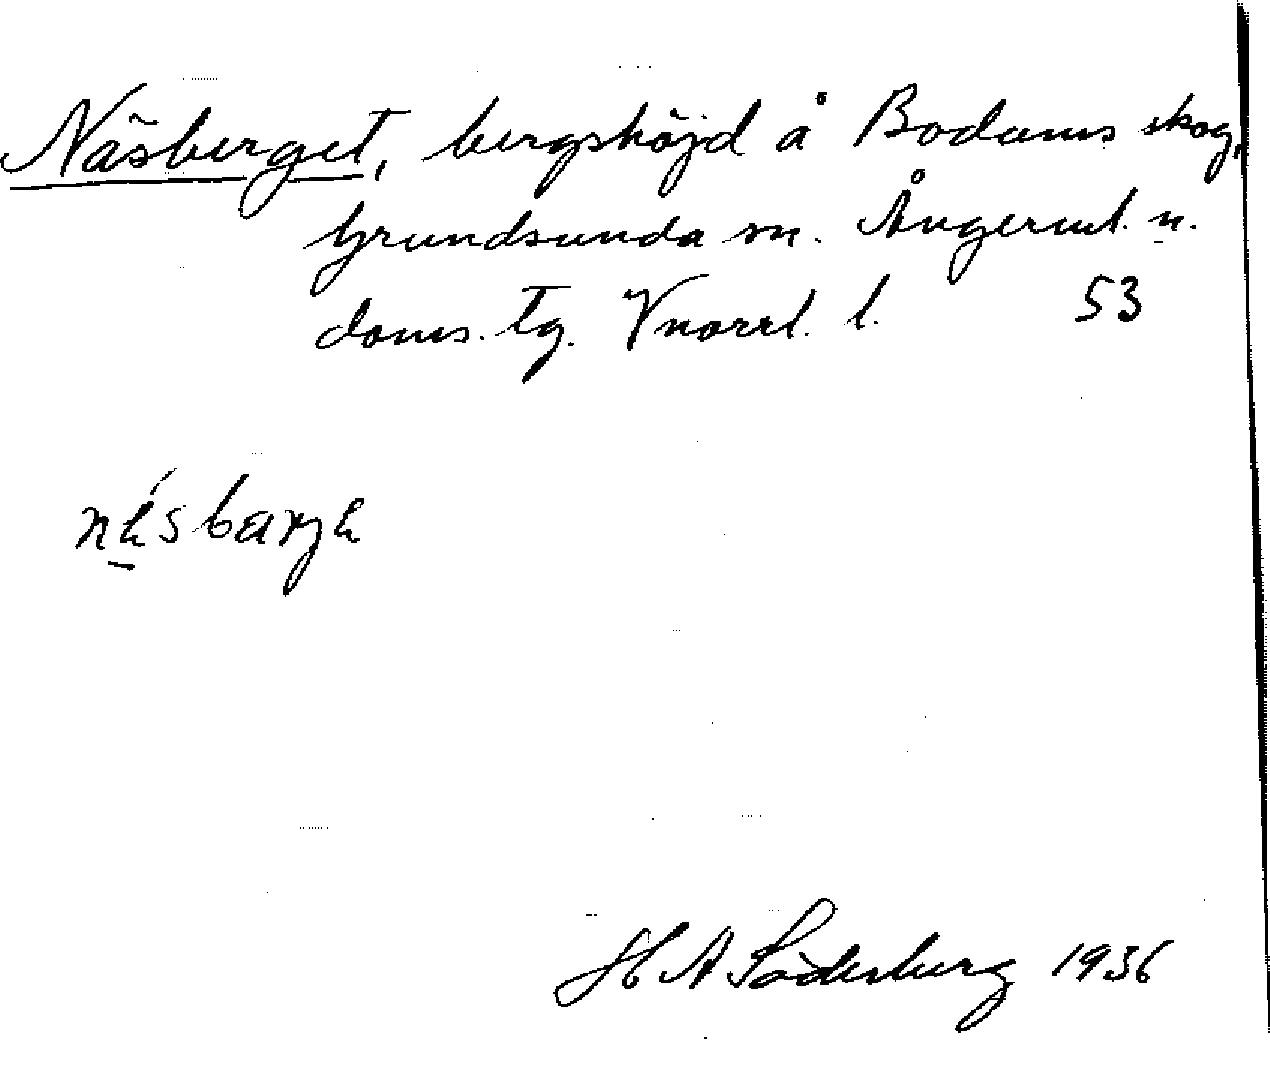 Näsberget, bergshöjd å Bodums skog,
Grundsunda sn. Ångerml. n.
doms. tg. Vnorrl. l. 53
H A Söderberg 1936